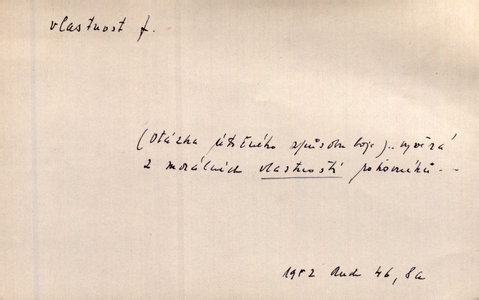 vlastnost f.
(Otázka útočného způsobu boje).. vyvěrá
z morálních vlastností
1952 Rud 46, 8a